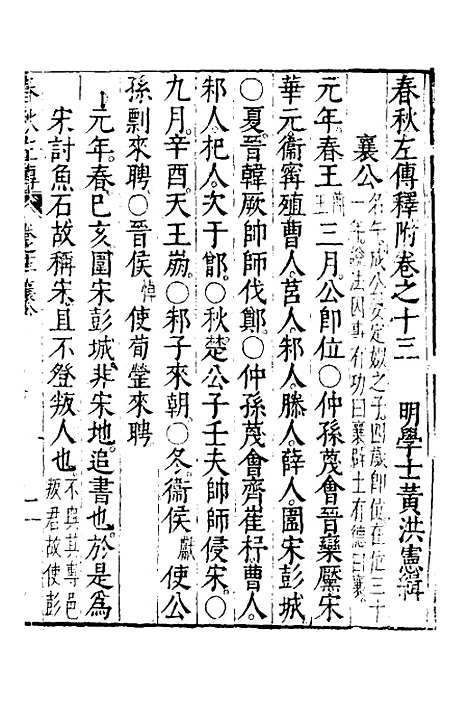 春秋左傳釋附卷之十三　明學士黃洪憲輯
襄公名午成公妾定姒之子四歲即位在位三十一年諡法因事有功曰襄辟土有德曰襄
元年春王簡王三月公即位〇仲孫蔑會晉欒黶宋
華元衞甯殖曹人莒人邾人滕人薛人圍宋彭城
〇夏晉韓厥帥師伐鄭〇仲孫蔑會齊崔杼曹人
邾人杞人次于鄫〇秋楚公子壬夫帥師侵宋〇
九月辛酉天王崩〇邾子來朝〇冬衞侯獻使公
孫剽來聘〇晉侯悼使荀罃來聘
元年春己亥圍宋彭城非宋地追書也於是爲
宋討魚石故稱宋且不登叛人也不與其專邑叛君故使彭
春秋左傳　卷十三　襄公　一